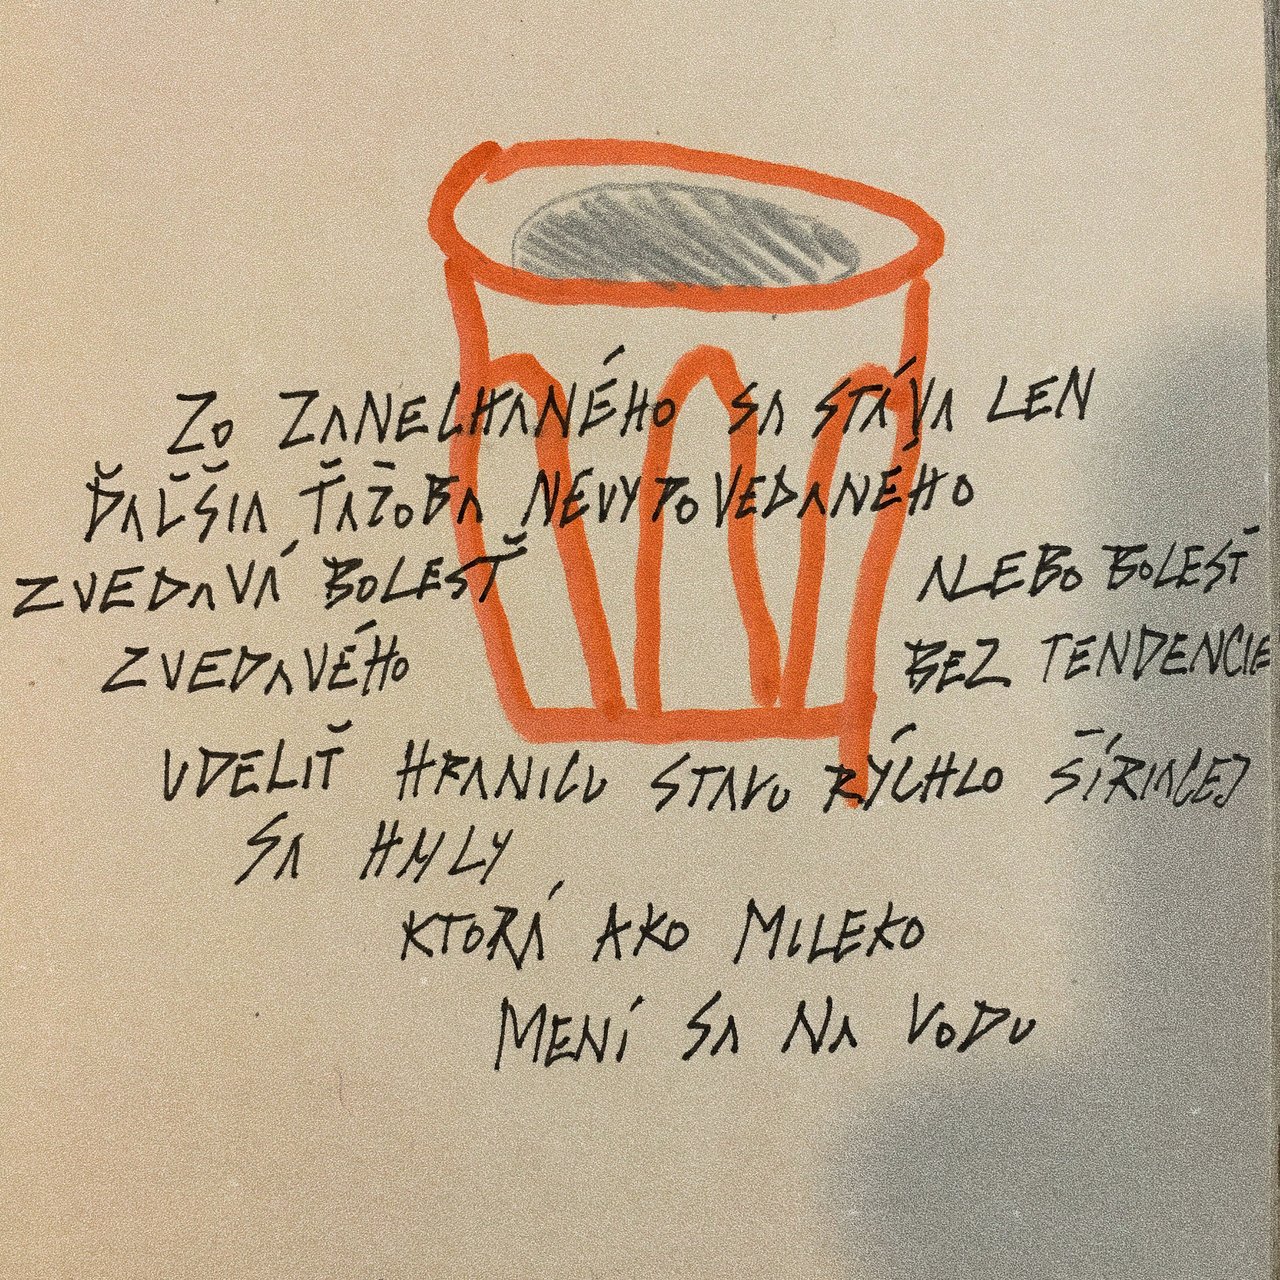 ZO ZANECHANÉHO SA STÁVA LEN
ĎALŠIA ŤAŽOBA NEVYPOVEDANÉHO
ZVEDAVÁ BOLESŤ ALEBO BOLESŤ
ZVEDAVÉHO BEZ TENDENCIE
UDELIŤ HRANICU STAVU RÝCHLO ŠÍRIACEJ
SA HMLY
KTORÁ AKO MLIEKO
MENÍ SA NA VODU